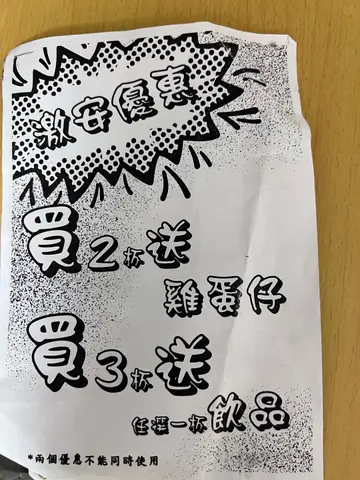 激安優惠
買2杯送
雞蛋仔
買3杯送
任擇一杯飲品
*兩個優惠不能同時使用